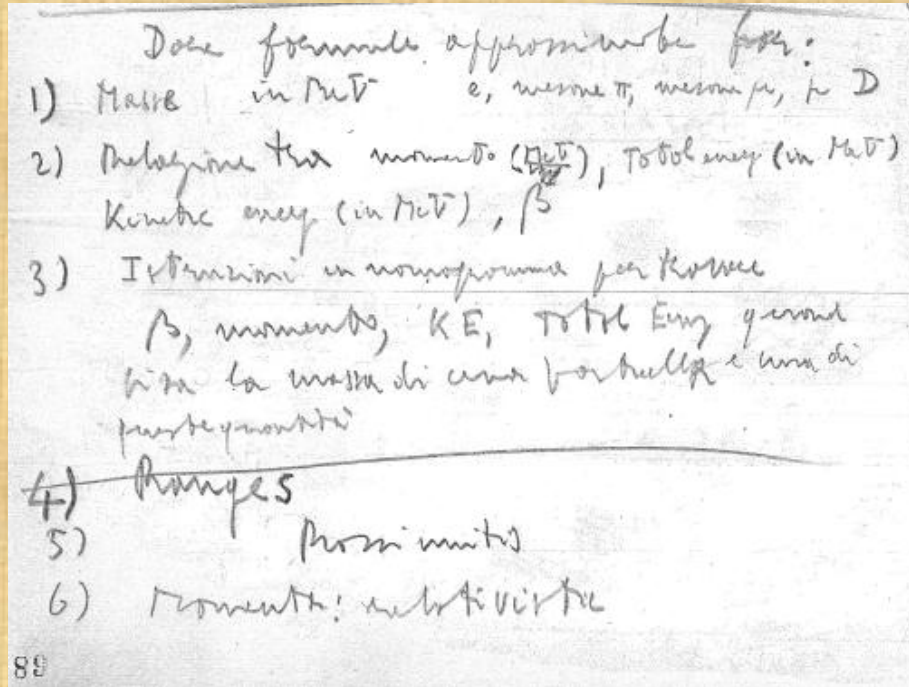 Dare formule approssimate per:
1) Masse in MeV e, mesone π, mesone μ, p D
2) Relazione tra momento (MeV), Total energ (in MeV)
Kinetic energ (in MeV), β
3) Istruzioni in nomogramma per trovare
β, momento, KE, Total Energ
la massa di una particella e una di
queste quantità
4) Ranges
5) Prossimità
6) Momenta: relativistic
89